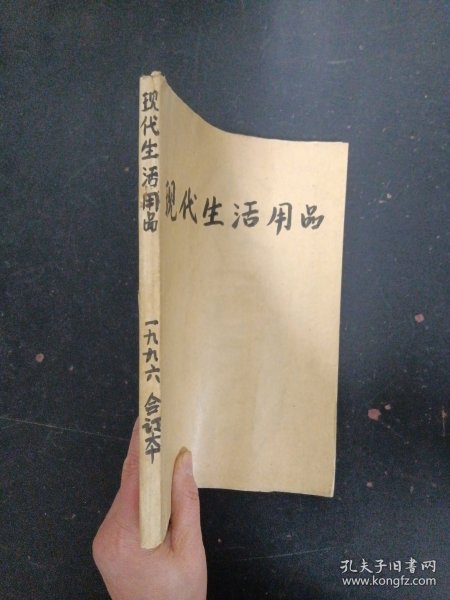 现代生活用品
一九九六 合订本
现代生活用品
孔夫子旧书网
www.kongfz.com